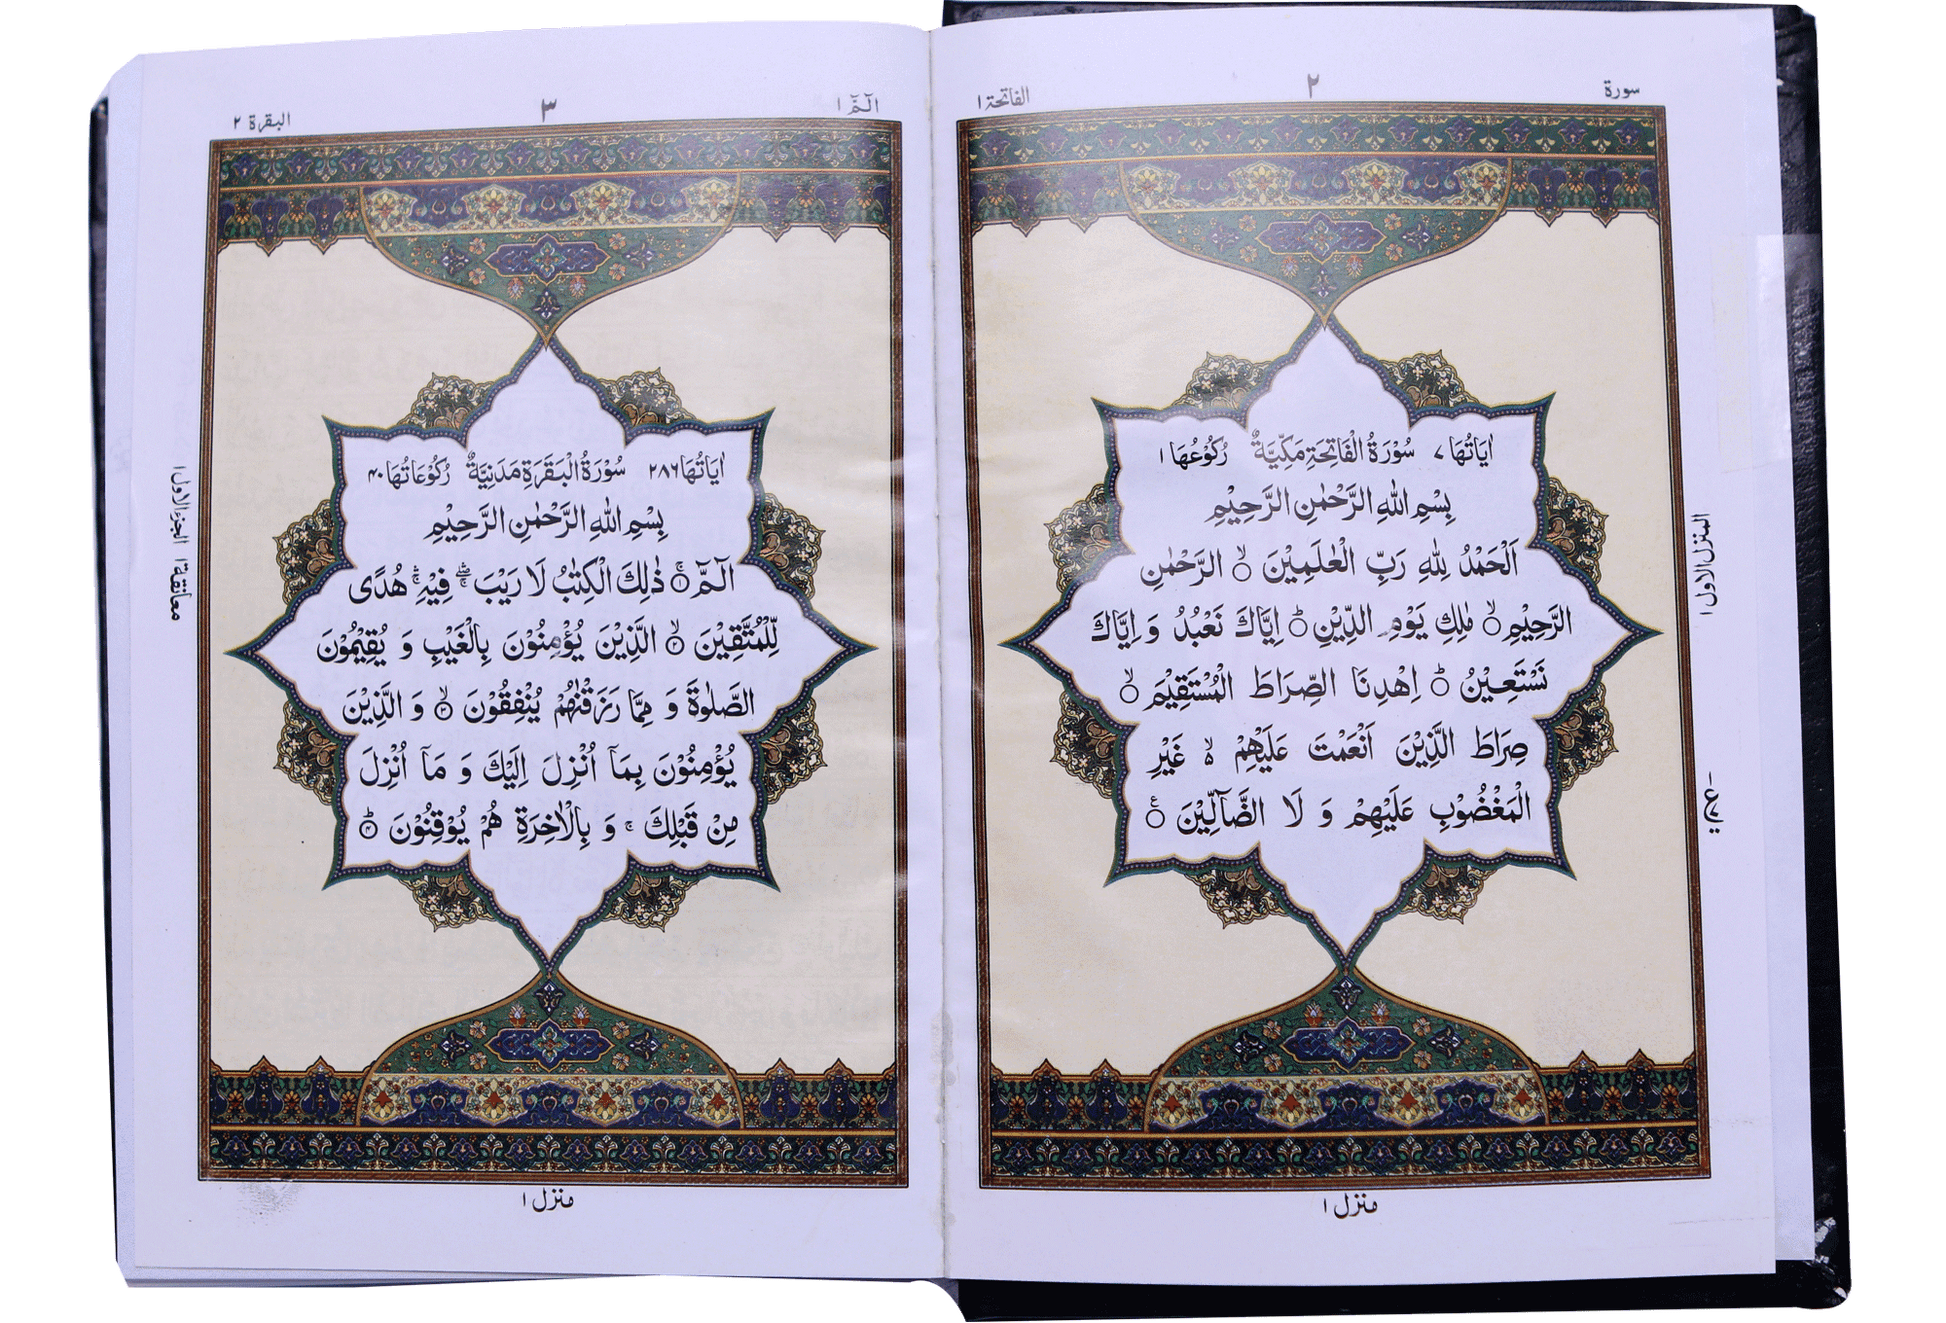 سورة
٢
الفاتحة ١
اٰيَاتُهَا ٧ سُوْرَةُ الْفَاتِحَةِ مَكِّيَّةٌ رُكُوْعُهَا ١
بِسْمِ اللّٰهِ الرَّحْمٰنِ الرَّحِيْمِ
اَلْحَمْدُ لِلّٰهِ رَبِّ الْعٰلَمِيْنَ ۙ○ الرَّحْمٰنِ
الرَّحِيْمِ ۙ○ مٰلِكِ يَوْمِ الدِّيْنِ ؕ○ اِيَّاكَ نَعْبُدُ وَ اِيَّاكَ
نَسْتَعِيْنُ ؕ○ اِهْدِنَا الصِّرَاطَ الْمُسْتَقِيْمَ ۙ○
صِرَاطَ الَّذِيْنَ اَنْعَمْتَ عَلَيْهِمْ ۙ۬ غَيْرِ
الْمَغْضُوْبِ عَلَيْهِمْ وَ لَا الضَّآلِّيْنَ ○
المنزل الاول ١
منزل ١
الٓمّٓ ١
٣
البقرة ٢
اٰيَاتُهَا ٢٨٦ سُوْرَةُ الْبَقَرَةِ مَدَنِيَّةٌ رُكُوْعَاتُهَا ٤٠
بِسْمِ اللّٰهِ الرَّحْمٰنِ الرَّحِيْمِ
الٓمّٓ ۚ○ ذٰلِكَ الْكِتٰبُ لَا رَيْبَ ۛۖ فِيْهِ ۛۚ هُدًى
لِّلْمُتَّقِيْنَ ۙ۝٢ الَّذِيْنَ يُؤْمِنُوْنَ بِالْغَيْبِ وَ يُقِيْمُوْنَ
الصَّلٰوةَ وَ مِمَّا رَزَقْنٰهُمْ يُنْفِقُوْنَ ۙ۝٣ وَ الَّذِيْنَ
يُؤْمِنُوْنَ بِمَاۤ اُنْزِلَ اِلَيْكَ وَ مَاۤ اُنْزِلَ
مِنْ قَبْلِكَ ۚ وَ بِالْاٰخِرَةِ هُمْ يُوْقِنُوْنَ ؕ۝٤
معانقة ١ الجزء الاول ١
منزل ١